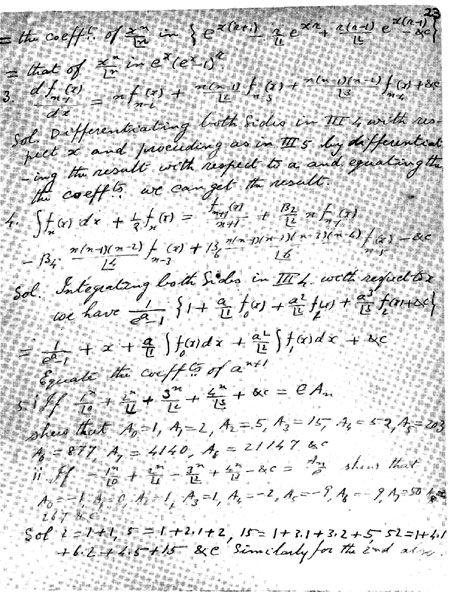 23
= the coefft. of x^n/|n in { e^{x(r+1)} - r/|1 e^{xr} + r(r-1)/|2 e^{x(r-1)} - &c }
= that of x^n/|n in e^x (e^x - 1)^r.
3. d f_{n-1}(x)/dx = n f_{n-2}(x) + n(n-1)/|2 f_{n-3}(x) + n(n-1)(n-2)/|3 f_{n-4}(x) + &c
Sol. Differentiating both sides in III 4 with res-
pect x and proceeding as in III 5 by differentiat
-ing the result with respect to a and equating the
the coeffts. we can get the result.
4. ∫ f_n(x) dx + 1/2 f_n(x) = f_{n+1}(x)/n+1 + B_2/|2 n f_{n-1}(x)
- B_4 n(n-1)(n-2)/|4 f_{n-3}(x) + B_6 n(n-1)(n-2)(n-3)(n-4)/|6 f_{n-5}(x) - &c
Sol. Integrating both sides in III 4. with respect to x
we have 1/(e^a - 1) { 1 + a/|1 f_0(x) + a^2/|2 f_1(x) + a^3/|3 f_2(x) + &c }
= 1/(e^a - 1) + x + a/|1 ∫ f_0(x) dx + a^2/|2 ∫ f_1(x) dx + &c
Equate the coeffts of a^{n+1}
5. i If 1^n/|0 + 2^n/|1 + 3^n/|2 + 4^n/|3 + &c = e A_n
shew that A_0 = 1, A_1 = 2, A_2 = 5, A_3 = 15, A_4 = 52, A_5 = 203
A_6 = 877 A_7 = 4140, A_8 = 21147 &c
ii If - 1^n/|0 + 2^n/|1 - 3^n/|2 + 4^n/|3 - &c = A_n/e shew that
A_0 = -1 A_1 = 0, A_2 = 1, A_3 = 1, A_4 = -2, A_5 = -9, A_6 = -9, A_7 = 50
267 &c.
Sol 2 = 1+1, 5 = 1+2.1+2, 15 = 1+3.1+3.2+5, 52 = 1+4.1
+6.2+4.5+15 &c Similarly for the 2nd also.